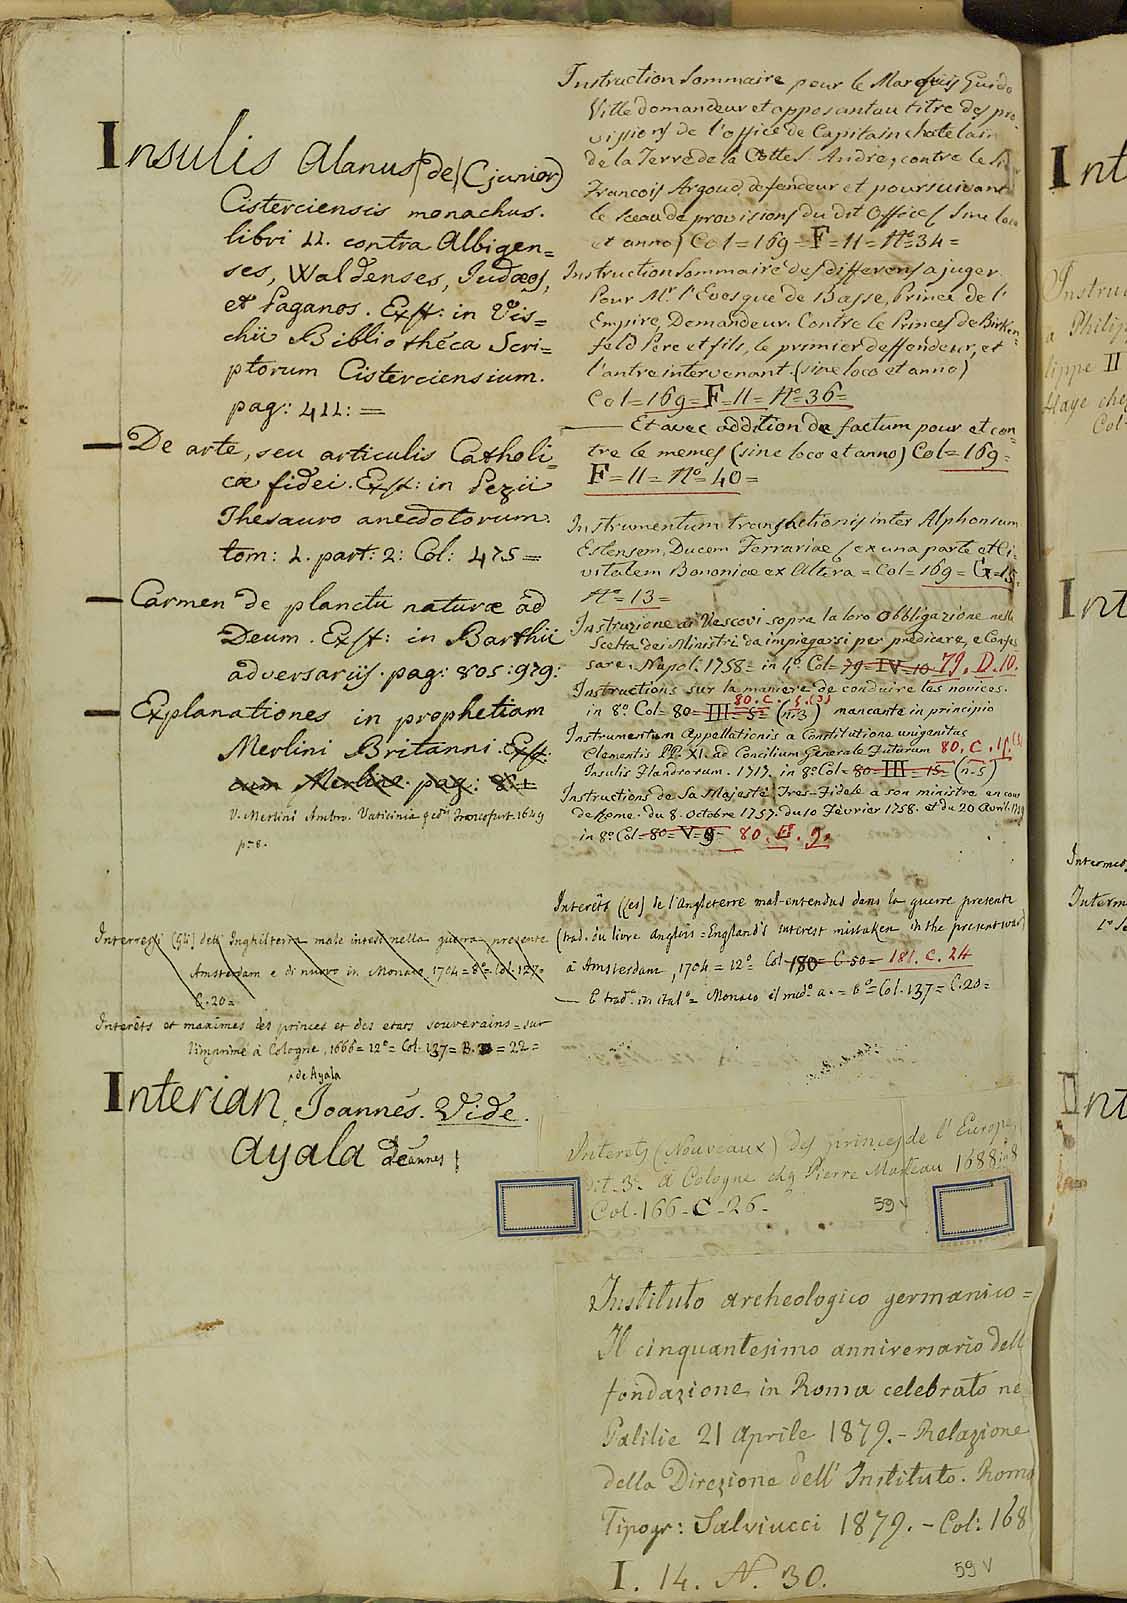 Insulis Alanus (de) (junior)
Cisterciensis monachus.
libri II. contra Albigen=
ses, Waldenses, Judæos,
et Paganos. Exst: in Vis=
chii Bibliothéca Scri=
ptorum Cisterciensium.
pag: 411: =
— De arte, seu articulis Catholi=
cæ fidei. Exst: in Pezii
Thesauro anecdotorum.
tom: I. part: 2: Col: 475 =
— Carmen de planctu naturæ ad
Deum. Exst: in Barthii
adversariis. pag: 805: 979:
— Explanationes in prophetiam
Merlini Britanni. Exst:
cum Merlino. pag:
V. Merlini Ambro. Vaticinia Francofurt. 1649
p=8.
Interressi (gli) dell' Inghilterra male intesi nella guerra presente
Amsterdam e di nuovo in Monaco 1704 = 8º = Col. 137=
C. 20 =
Interêts et maximes des princes et des etats souverains = sur
l'imprimé à Cologne, 1666 = 12º = Col. 137 = B. = 22 =
de Ayala
Interian, Joannes. Vide.
Ayala Joannes!
Instruction Sommaire pour le Marquis Guido
Ville domandeur et apposant au titre des pro-
visions de l'office de Capitain chatelain
de la Terre de la Cottes. Andre, contre le Sr
Francois Argoud, defendeur et poursuivant
le sceau de provisions du dit Office (sine loco
et anno) Col = 169 = F = 11 = Nº = 34 =
Instruction Sommaire des differens a juger
Pour Mr. l'Evesque de Basse, Prince de l'
Empire, Demandeur. Contre le Princes de Birken=
feld Pere et fils, le premier deffendeur, et
l'autre intervenant. (sine loco et anno)
Col = 169 = F = 11 = Nº = 36 =
— Et avec addition de factum pour et con=
tre le memes (sine loco et anno) Col = 169 =
F = 11 = Nº = 40 =
Instrumentum transactionis inter Alphonsum
Estensem, Ducem Ferrariae (ex una parte et Ci-
vitatem Bononiæ ex Altera = Col = 169 = G = 15 =
Nº = 13 =
Instruzione ai Vescovi sopra la loro obbligazione nella
scelta dei Ministri da impiegarsi per predicare, e Confes
sare. Napoli. 1758 = in 4º. Col = 79 = IV = 10 79. D. 10.
Instructions sur la maniere de conduire les novices.
80. C. 5. (3)
in 8º Col = 80 = III = 5 = (n. 3) mancante in principio
Instrumentum Appellationis a Constitutione unigenitus
Clementis PP. XI. ad Concilium Generale Futurum 80. C. 15.
Insulis Flandrorum. 1717. in 8º Col = 80 = III = 15 = (n. 5)
Instructions de Sa Majesté Tres-Fidele a son ministre en cour
de Rome. du 8. Octobre 1757. du 10 Fevrier 1758. et du 20 Avril. 1759
in 8º Col = 80 = V = 9 = 80. E. 9.
Interêts (les) de l'Angleterre mal-entendus dans la guerre presente
(trad. du livre anglois = England's interest mistaken in the present war)
à Amsterdam, 1704 = 12º = Col 180 = C. 50 = 181. C. 24
— E trad. in ital.º = Monaco il med.º a. = 8º = Col. 137 = C. 20 =
Interets (Nouveaux) des princes de l'Europe,
dit. 3e. A Cologne chez Pierre Marteau 1688 in 8
Col. 166 - C - 26 -
59 v
Instituto archeologico germanico =
Il cinquantesimo anniversario dell
fondazione in Roma celebrato ne
Palilie 21 Aprile 1879. - Relazione
della Direzione dell' Instituto. Roma
Tipogr: Salviucci 1879. - Col: 168
I. 14. N. 30.
59 v
Int
Instruc
a Philip
lippe II
Haye chez
Col
Int
Intermed
Interm
Int